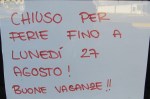 CHIUSO PER
FERIE FINO A
LUNEDÍ 27
AGOSTO!
BUONE VACANZE!!